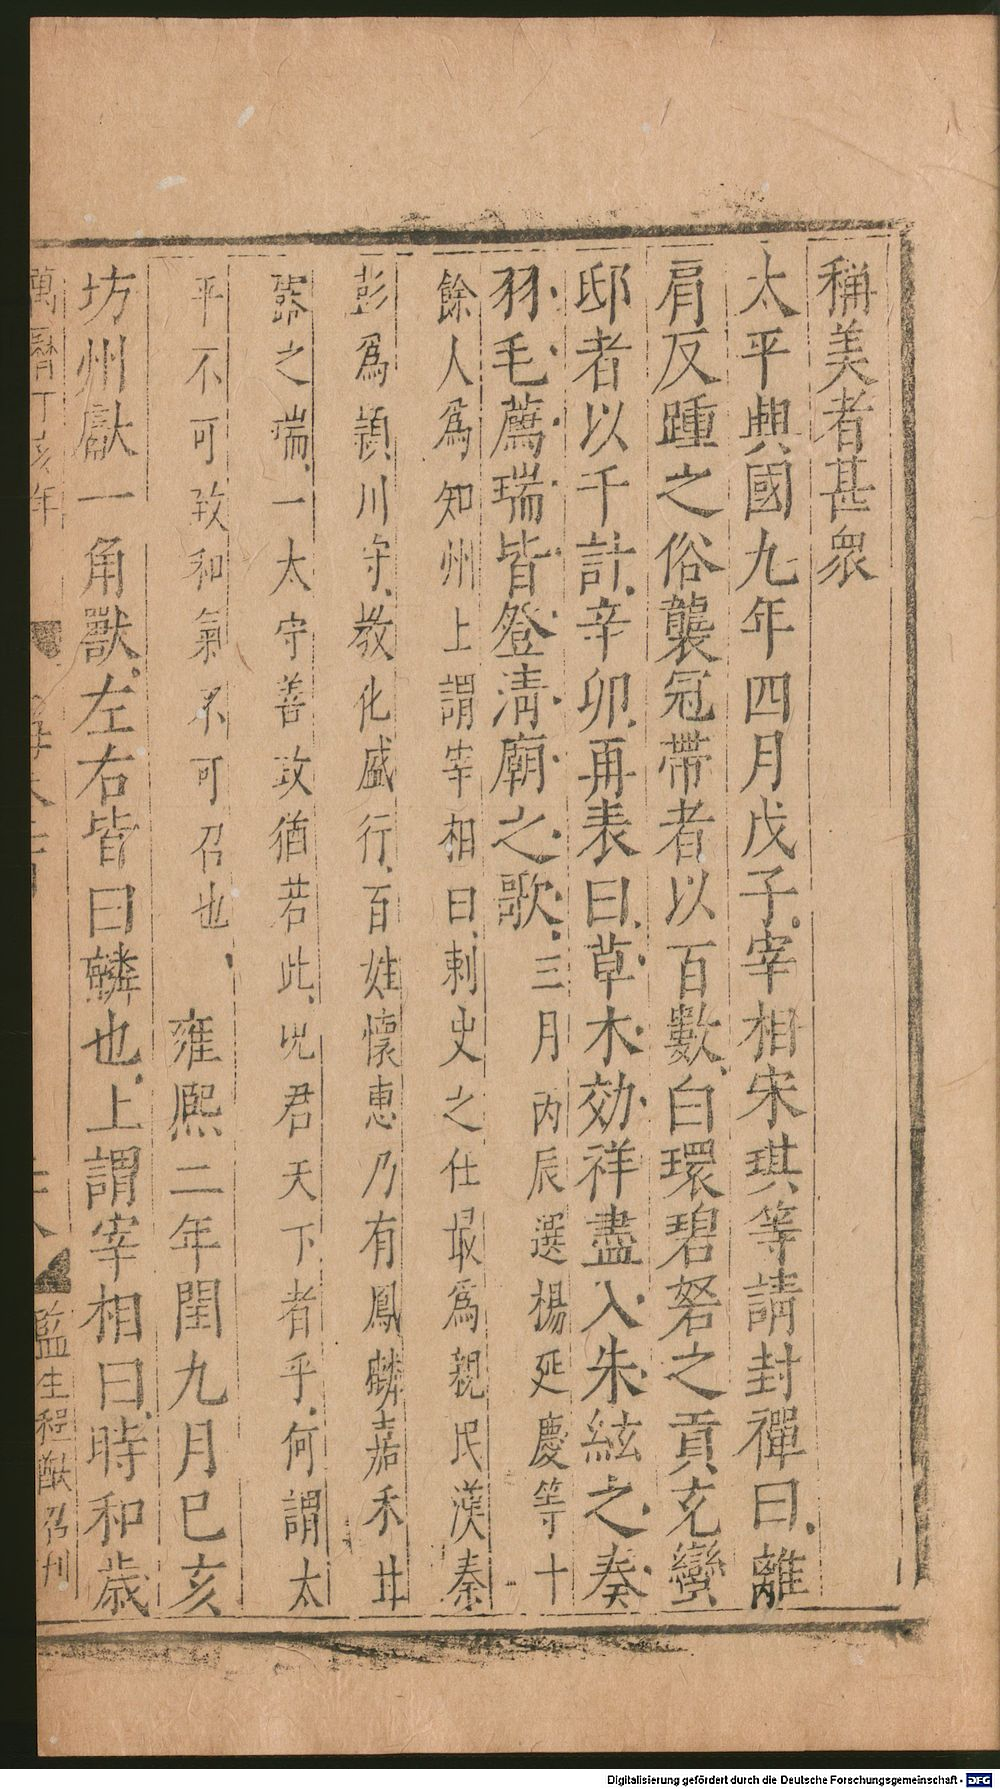 稱美者甚眾
太平興國九年四月戊子宰相宋琪等請封禪曰離
肩反踵之俗襲冠帶者以百數白環碧砮之貢充蠻
邸者以千計辛卯再表曰草木効祥盡入朱絃之奏
羽毛薦瑞皆登清廟之歌三月丙辰選楊延慶等十
餘人為知州上謂宰相曰刺史之仕最為親民漢秦
彭為潁川守教化盛行百姓懷惠乃有鳳麟嘉禾甘
露之瑞一太守善政猶若此況君天下者乎何謂太
平不可致和氣不可召也 雍熙二年閏九月己亥
坊州獻一角獸左右皆曰麟也上謂宰相曰時和歲
萬曆丁亥年
監生程猷召刊
Digitalisierung gefördert durch die Deutsche Forschungsgemeinschaft - DFG